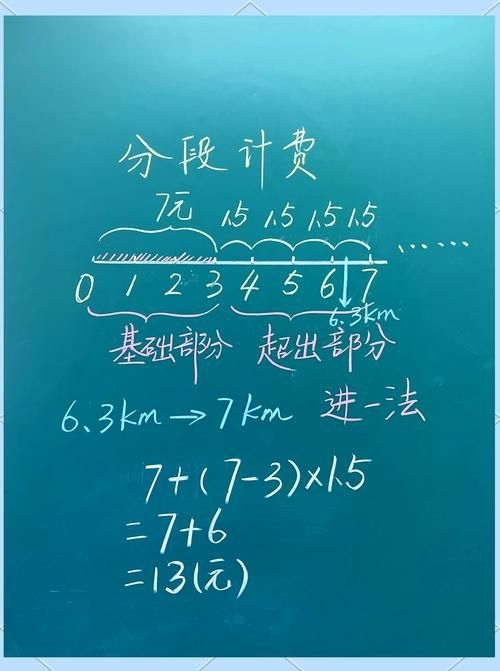 分段计费
7元 1.5 1.5 1.5 1.5
……
0 1 2 3 4 5 6 7
6.3km
基础部分 超出部分
6.3km→7km 进一法
7+(7-3)×1.5
=7+6
=13(元)